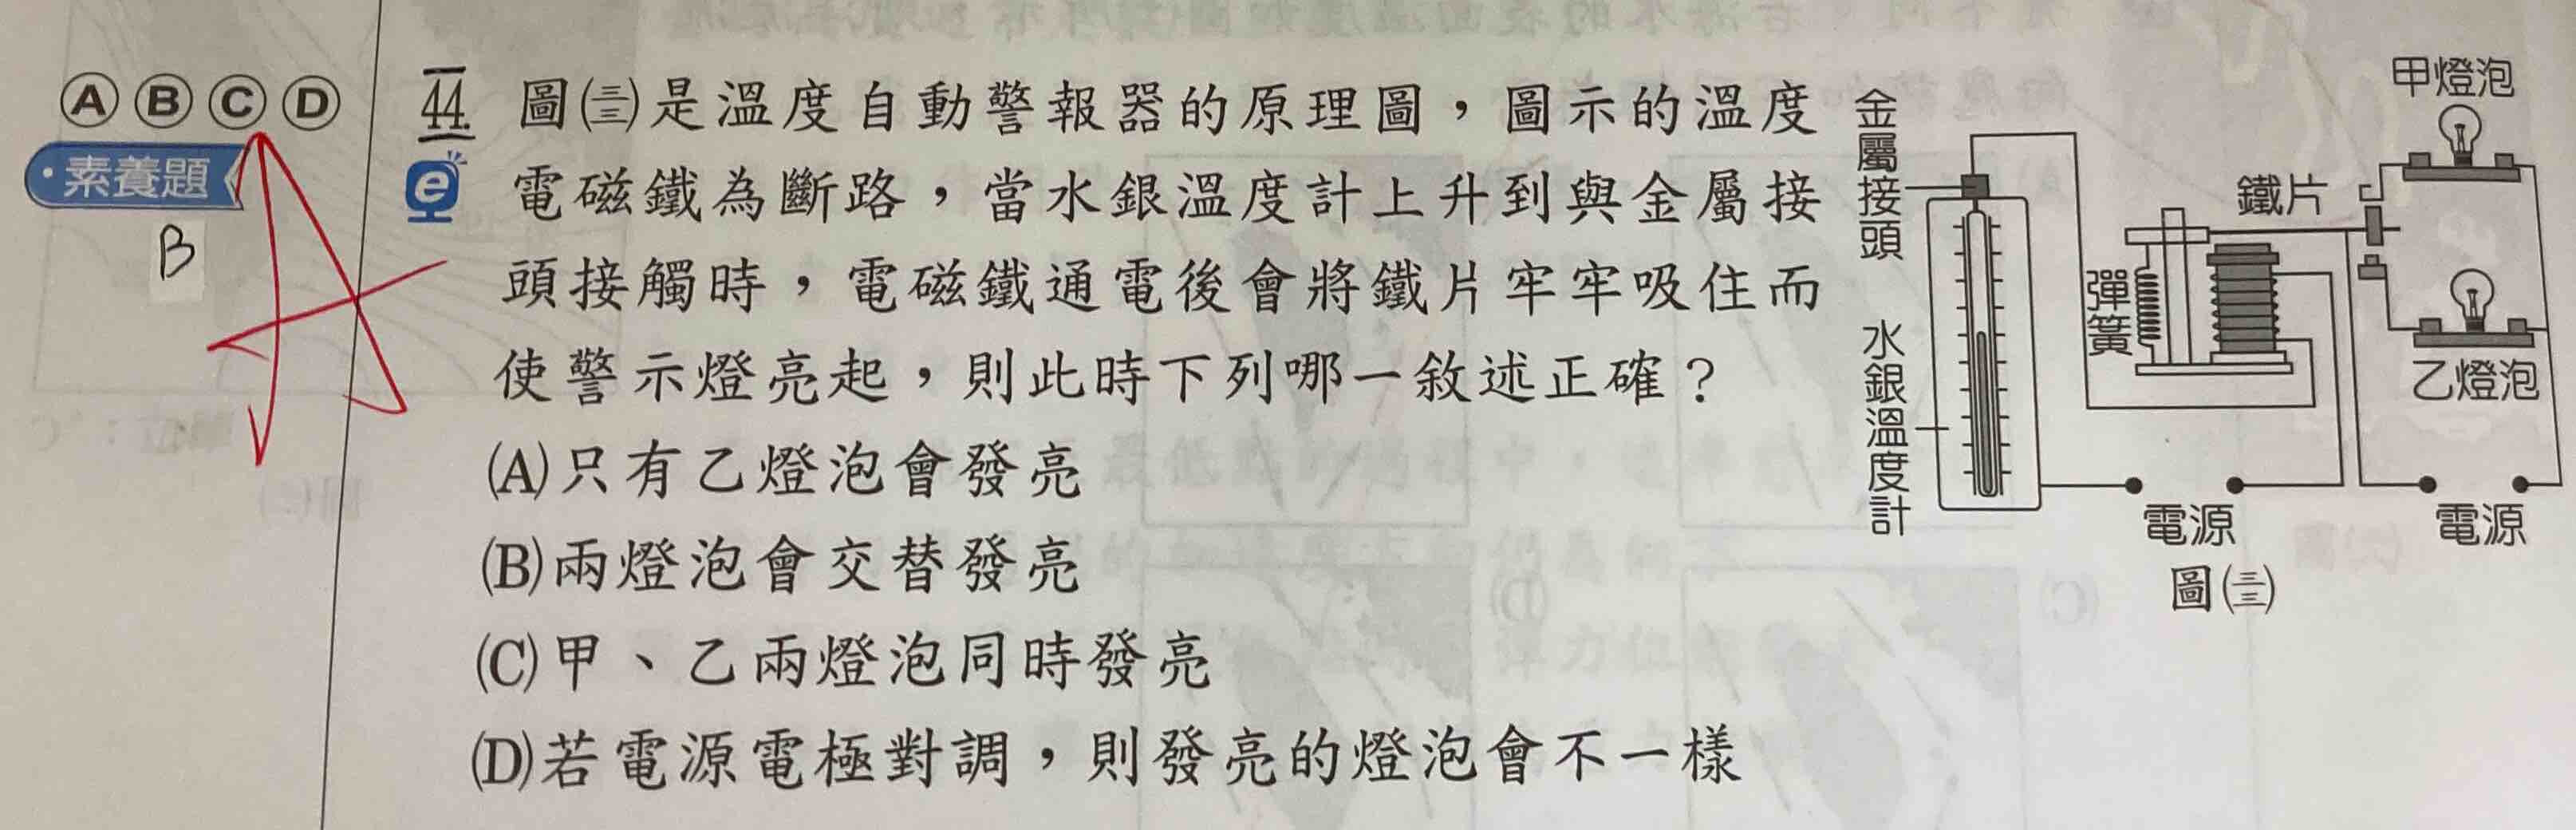 Ⓐ Ⓑ Ⓒ Ⓓ
·素養題
B
A
44. 圖(三三)是溫度自動警報器的原理圖，圖示的溫度
e
電磁鐵為斷路，當水銀溫度計上升到與金屬接
頭接觸時，電磁鐵通電後會將鐵片牢牢吸住而
使警示燈亮起，則此時下列哪一敘述正確？
(A)只有乙燈泡會發亮
(B)兩燈泡會交替發亮
(C)甲、乙兩燈泡同時發亮
(D)若電源電極對調，則發亮的燈泡會不一樣
金屬接頭
水銀溫度計
彈簧
鐵片
甲燈泡
乙燈泡
電源
電源
圖(三三)